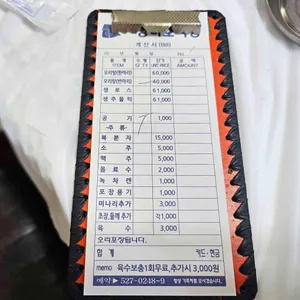 계 산 서 (Bill)
년 월 일 NO.
품 명 ITEM 수 량 Q'TY 단 가 UNIT PRICE 금 액 AMOUNT
오리탕(한마리) 60,000
오리탕(반마리) 40,000
생 로 스 61,000
생 주 물 럭 61,000
공 기 1,000
-주 류-
복 분 자 15,000
소 주 5,000
맥 주 5,000
음 료 수 2,000
녹 차 캔 1,000
포 장 용 기 1,000
미나리추가 3,000
초장,들깨 추가 각1,000
육 수 3,000
오리포장됩니다.
합 계 카드·현금
memo 육수보충1회무료,추가시 3,000원
예약 ▶ 527-0248~9